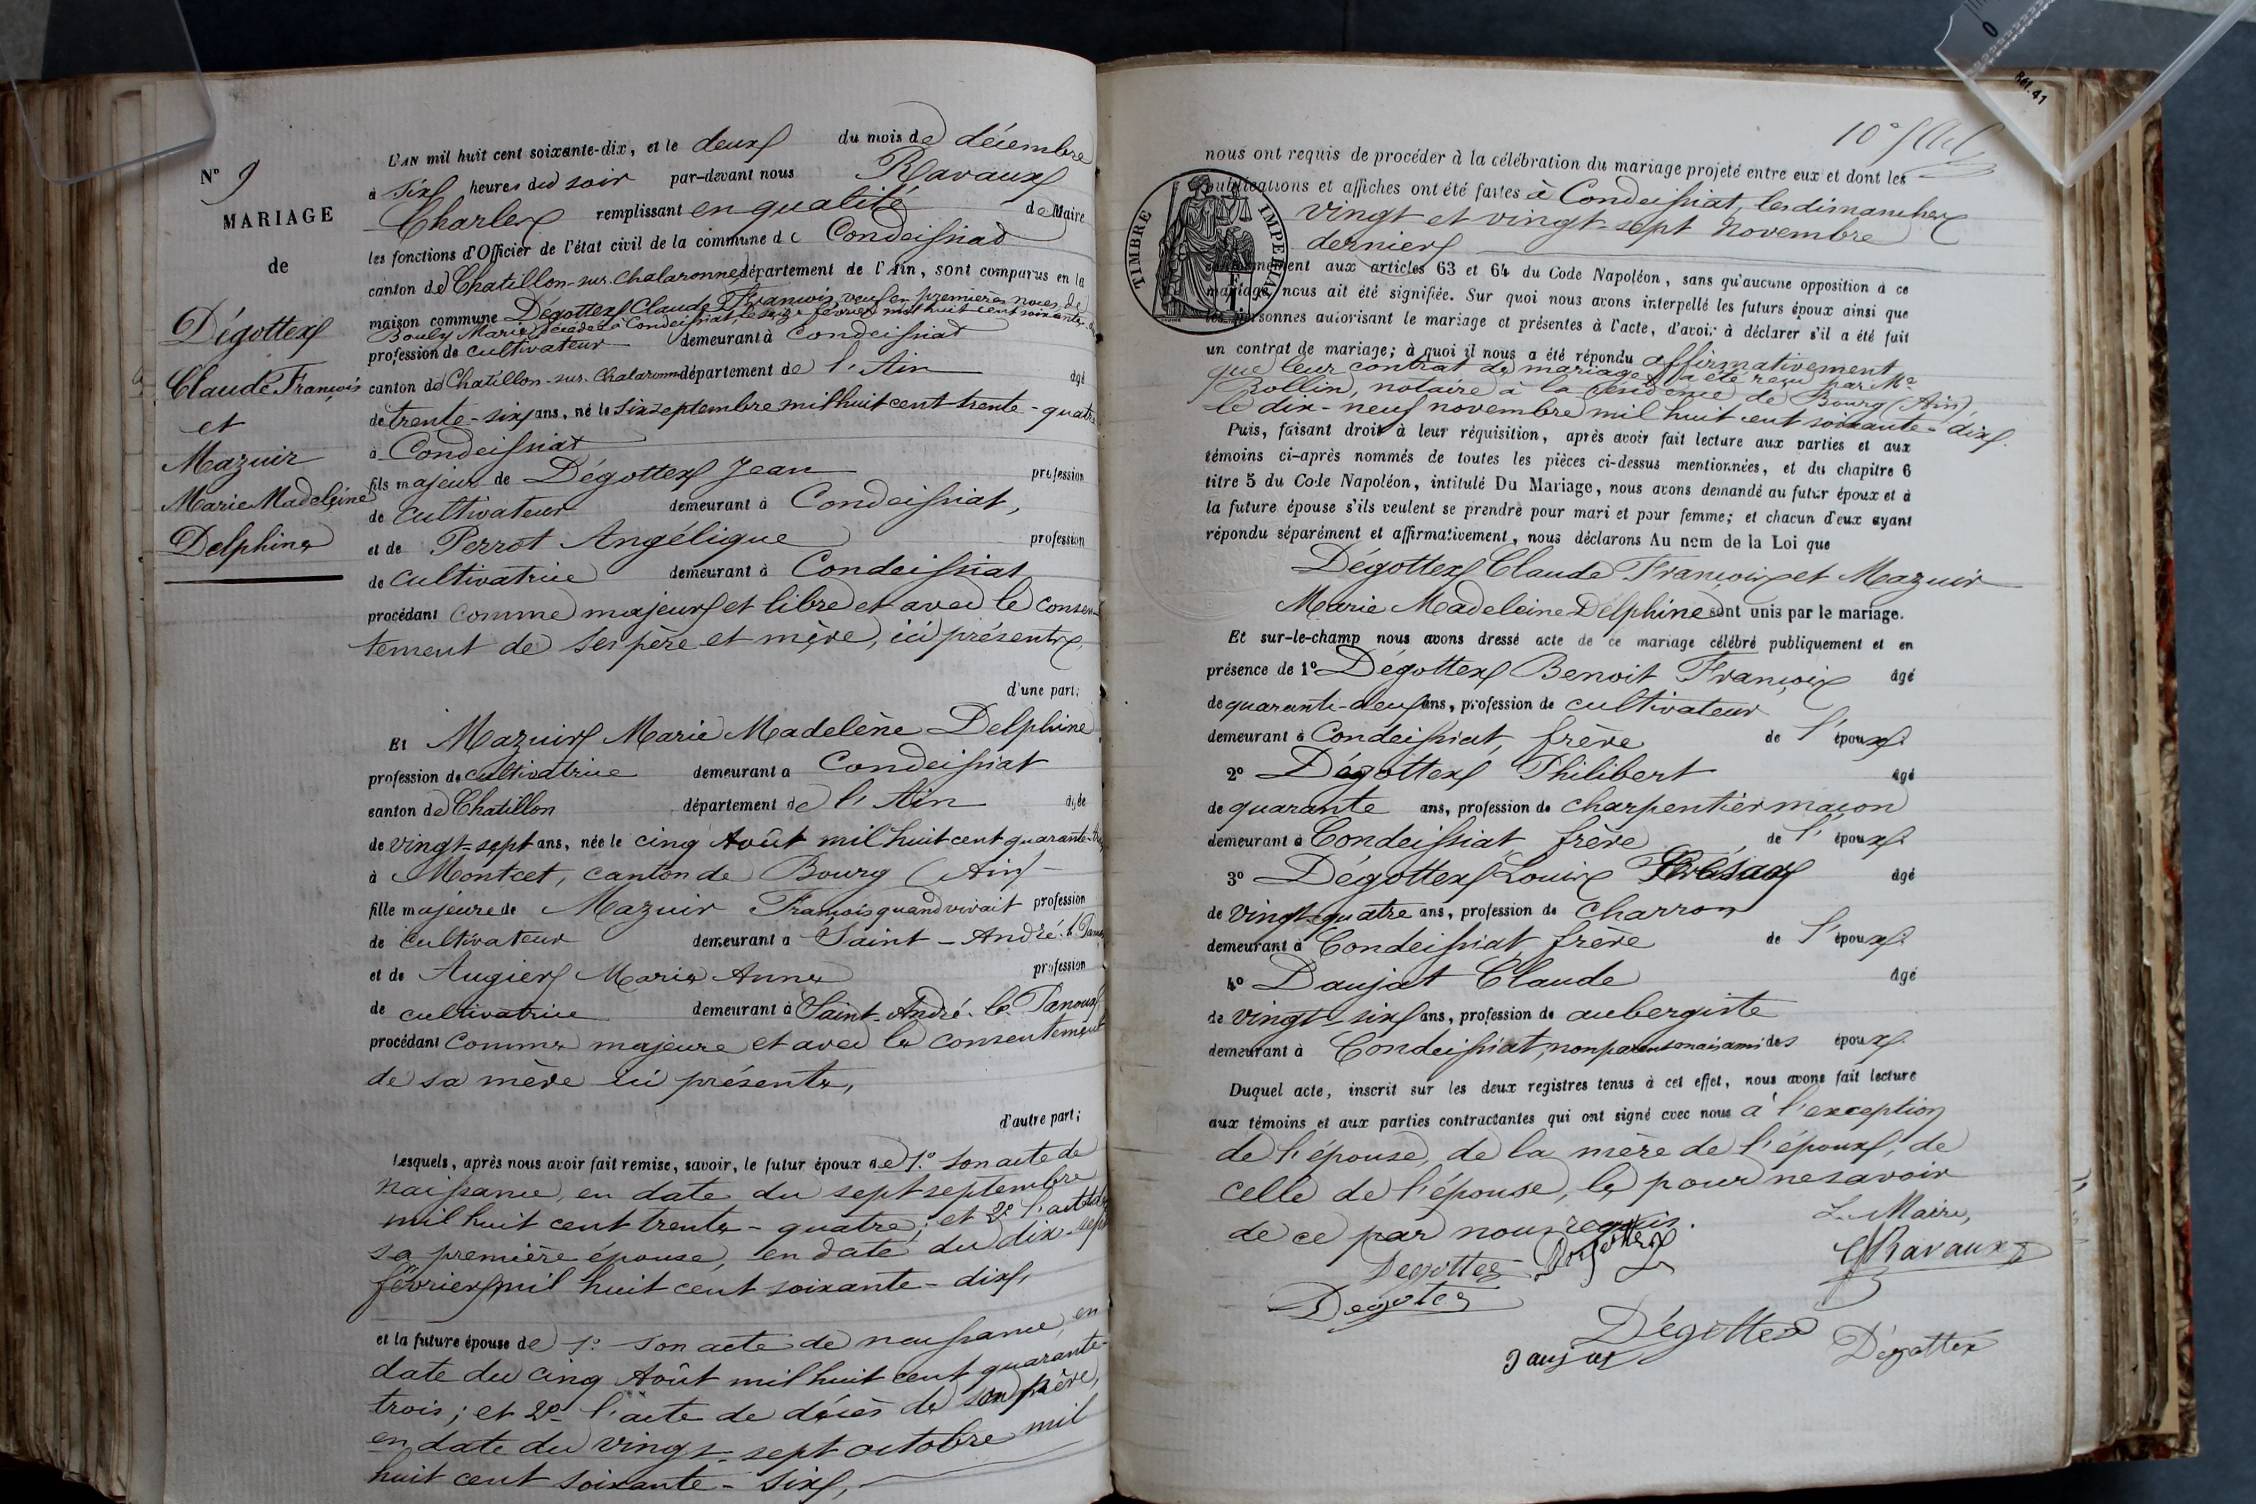 N° 9
MARIAGE
de
Dégottex
Claude François
et
Mazuir
Marie Madeleine
Delphine
L'AN mil huit cent soixante-dix, et le deux du mois de décembre
à six heures du soir par-devant nous Ravaux
Charles remplissant en qualité de Maire
les fonctions d'Officier de l'état civil de la commune de Condeissiat
canton de Chatillon-sur-Chalaronne département de l'Ain, sont comparus en la
maison commune Dégottex Claude François, veuf en premières noces de
Bouly Marie, décédée à Condeissiat, le seize février mil huit cent soixante-dix
profession de cultivateur demeurant à Condeissiat
canton de Chatillon-sur-Chalaronne département de l'Ain âgé
de trente-six ans, né le six septembre mil huit cent trente-quatre
à Condeissiat
fils majeur de Dégottex Jean profession
de cultivateur demeurant à Condeissiat,
et de Perrot Angélique profession
de cultivatrice demeurant à Condeissiat
procédant comme majeur et libre et avec le consen-
tement de ses père et mère, ici présents,
d'une part;
Et Mazuir Marie Madelène Delphine
profession de cultivatrice demeurant à Condeissiat
canton de Chatillon département de l'Ain âgée
de vingt-sept ans, née le cinq Août mil huit cent quarante-trois
à Montcet, canton de Bourg (Ain)
fille majeure de Mazuir François quand vivait profession
de cultivateur demeurant à Saint-André-le-Panoux
et de Augier Marie Anne profession
de cultivatrice demeurant à Saint-André-le-Panoux
procédant comme majeure et avec le consentement
de sa mère ici présente,
d'autre part;
Lesquels, après nous avoir fait remise, savoir, le futur époux de 1° son acte de
naissance, en date du sept septembre
mil huit cent trente-quatre; et 2° l'acte de
sa première épouse, en date du dix-sept
février mil huit cent soixante-dix,
et la future épouse de 1° son acte de naissance, en
date du cinq Août mil huit cent quarante-
trois; et 2° l'acte de décès de son père,
en date du vingt-sept octobre mil
huit cent soixante-six,
0
Réf. 41
TIMBRE IMPERIAL
nous ont requis de procéder à la célébration du mariage projeté entre eux et dont les
publications et affiches ont été faites à Condeissiat, les dimanches
vingt et vingt-sept Novembre
dernier
conformément aux articles 63 et 64 du Code Napoléon, sans qu'aucune opposition à ce
mariage nous ait été signifiée. Sur quoi nous avons interpellé les futurs époux ainsi que
les personnes autorisant le mariage et présentes à l'acte, d'avoir à déclarer s'il a été fait
un contrat de mariage; à quoi il nous a été répondu affirmativement
que leur contrat de mariage a été reçu par Me
Rollin, notaire à la résidence de Bourg (Ain),
le dix-neuf novembre mil huit cent soixante-dix.
Puis, faisant droit à leur réquisition, après avoir fait lecture aux parties et aux
témoins ci-après nommés de toutes les pièces ci-dessus mentionnées, et du chapitre 6
titre 5 du Code Napoléon, intitulé Du Mariage, nous avons demandé au futur époux et à
la future épouse s'ils veulent se prendre pour mari et pour femme; et chacun d'eux ayant
répondu séparément et affirmativement, nous déclarons Au nom de la Loi que
Dégottex Claude François et Mazuir
Marie Madeleine Delphine sont unis par le mariage.
Et sur-le-champ nous avons dressé acte de ce mariage célébré publiquement et en
présence de 1° Dégottex Benoit François âgé
de quarante-deux ans, profession de cultivateur
demeurant à Condeissiat, frère de l'époux
2° Dégottex Philibert âgé
de quarante ans, profession de charpentier maçon
demeurant à Condeissiat frère de l'époux
3° Dégottex Louis âgé
de vingt-quatre ans, profession de charron
demeurant à Condeissiat frère de l'époux
4° Daujat Claude âgé
de vingt-six ans, profession de aubergiste
demeurant à Condeissiat, non parent mais ami des époux
Duquel acte, inscrit sur les deux registres tenus à cet effet, nous avons fait lecture
aux témoins et aux parties contractantes qui ont signé avec nous à l'exception
de l'épouse, de la mère de l'époux, de
celle de l'épouse, le pour ne savoir
de ce par nous requis.
Le Maire,
Degottex Degottex CRavaux
Degotex
Dégottex
Daujat Dégottex